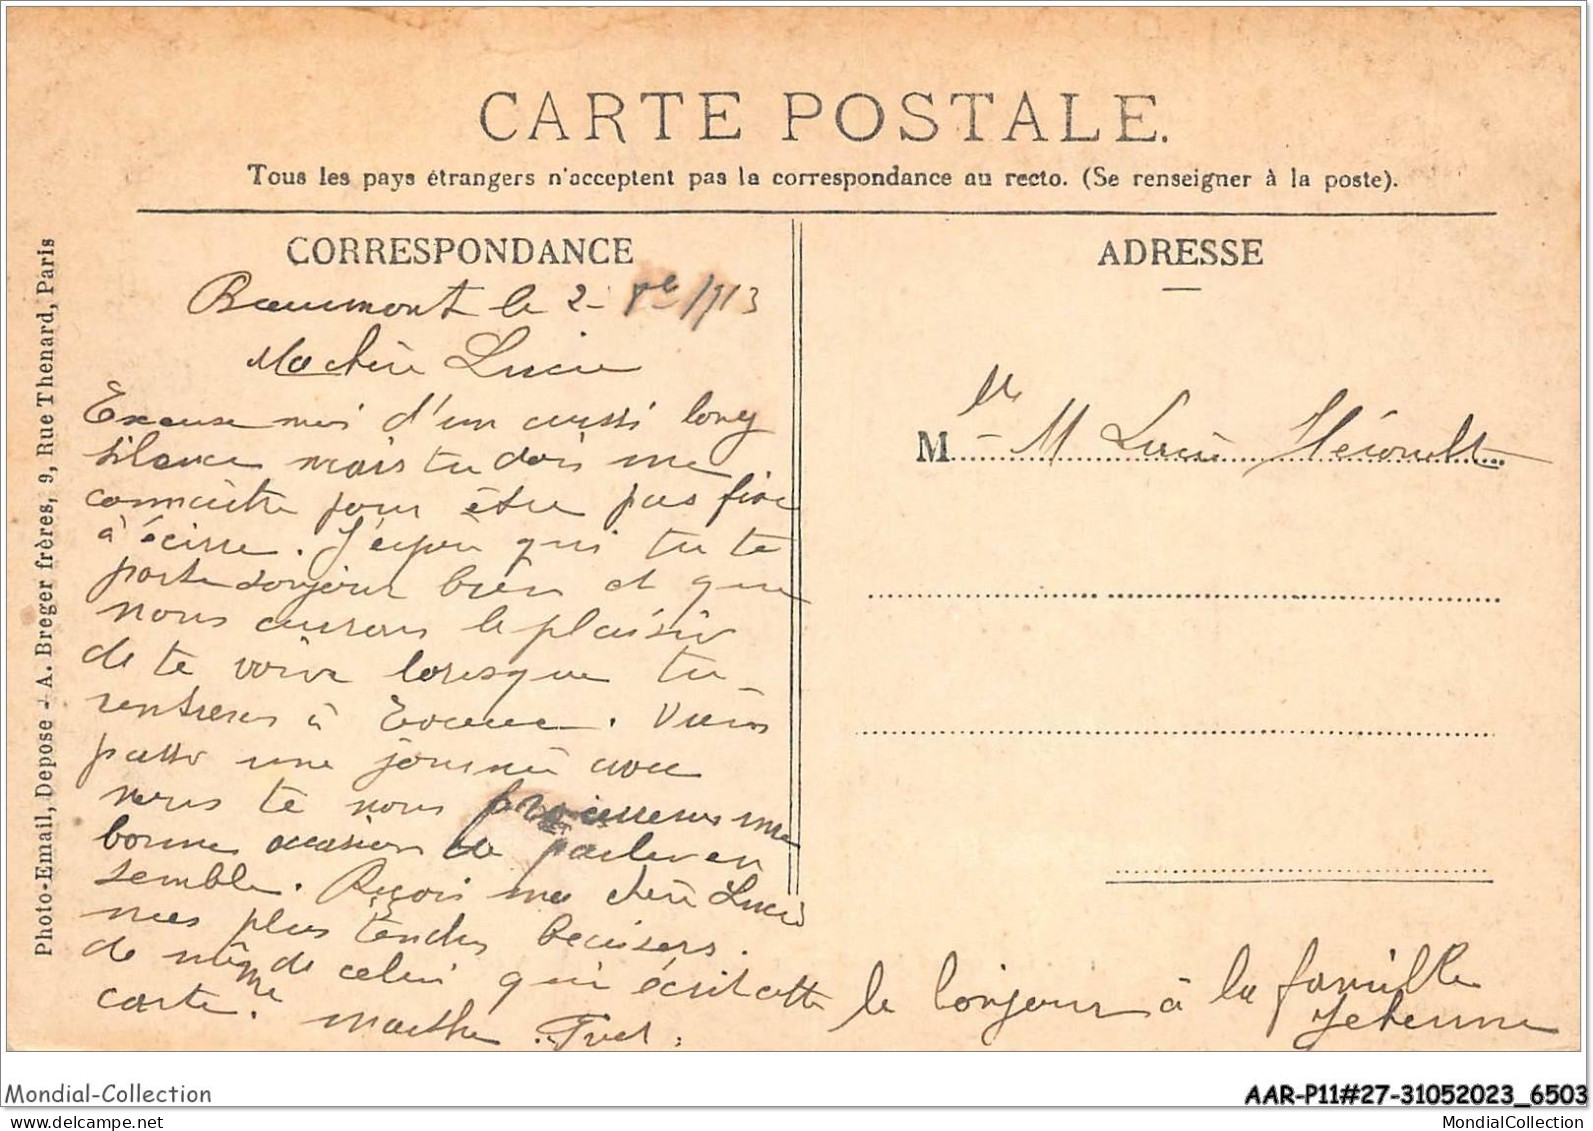 CARTE POSTALE.
Tous les pays étrangers n'acceptent pas la correspondance au recto. (Se renseigner à la poste).
CORRESPONDANCE
Beaumont le 2- 1913
Ma chère Lucie
Excuse moi d'un aussi long
silence mais tu dois me
connaitre pour être pas fire
à écirre. J'espou qui tu te
porte toujour bien et que
nous aurons le plaisir
de te voire loresque tu
rentreras à. Viens
passr une journée avec
nous te nous procurerons une
bonne occasion de parler en
semble. Reçois ma chère Lucie
mes plus tendres baisers.
de même de celui qui écrit cette
carte. Marthe
ADRESSE
M - Mlle Lucie Hérault
le bonjour à la famille
Jehenne
Photo-Email, Depose - A. Breger frères, 9, Rue Thenard, Paris
Mondial-Collection
AAR-P11#27-31052023_6503
MondialCollection